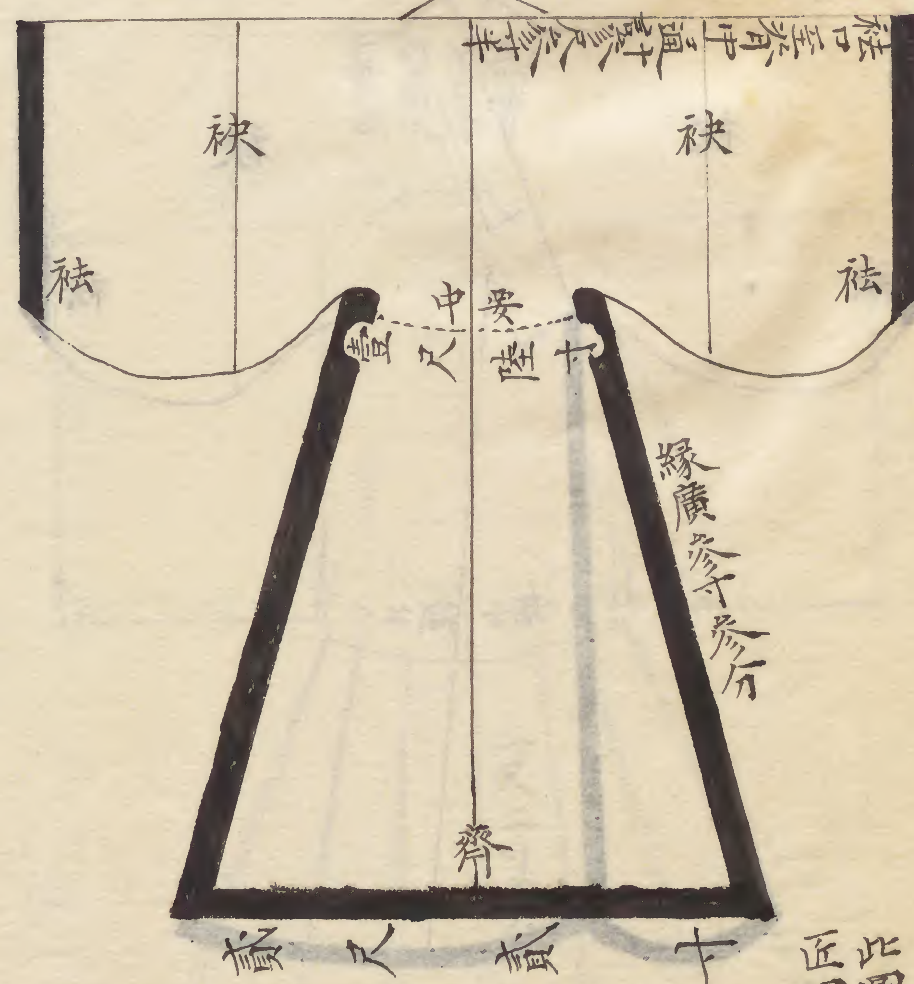 袪口至脊中通計參尺參寸半
袂
袂
袪
袪
要中
壹尺陸寸
緣廣參寸參分
齊
貳尺貳寸